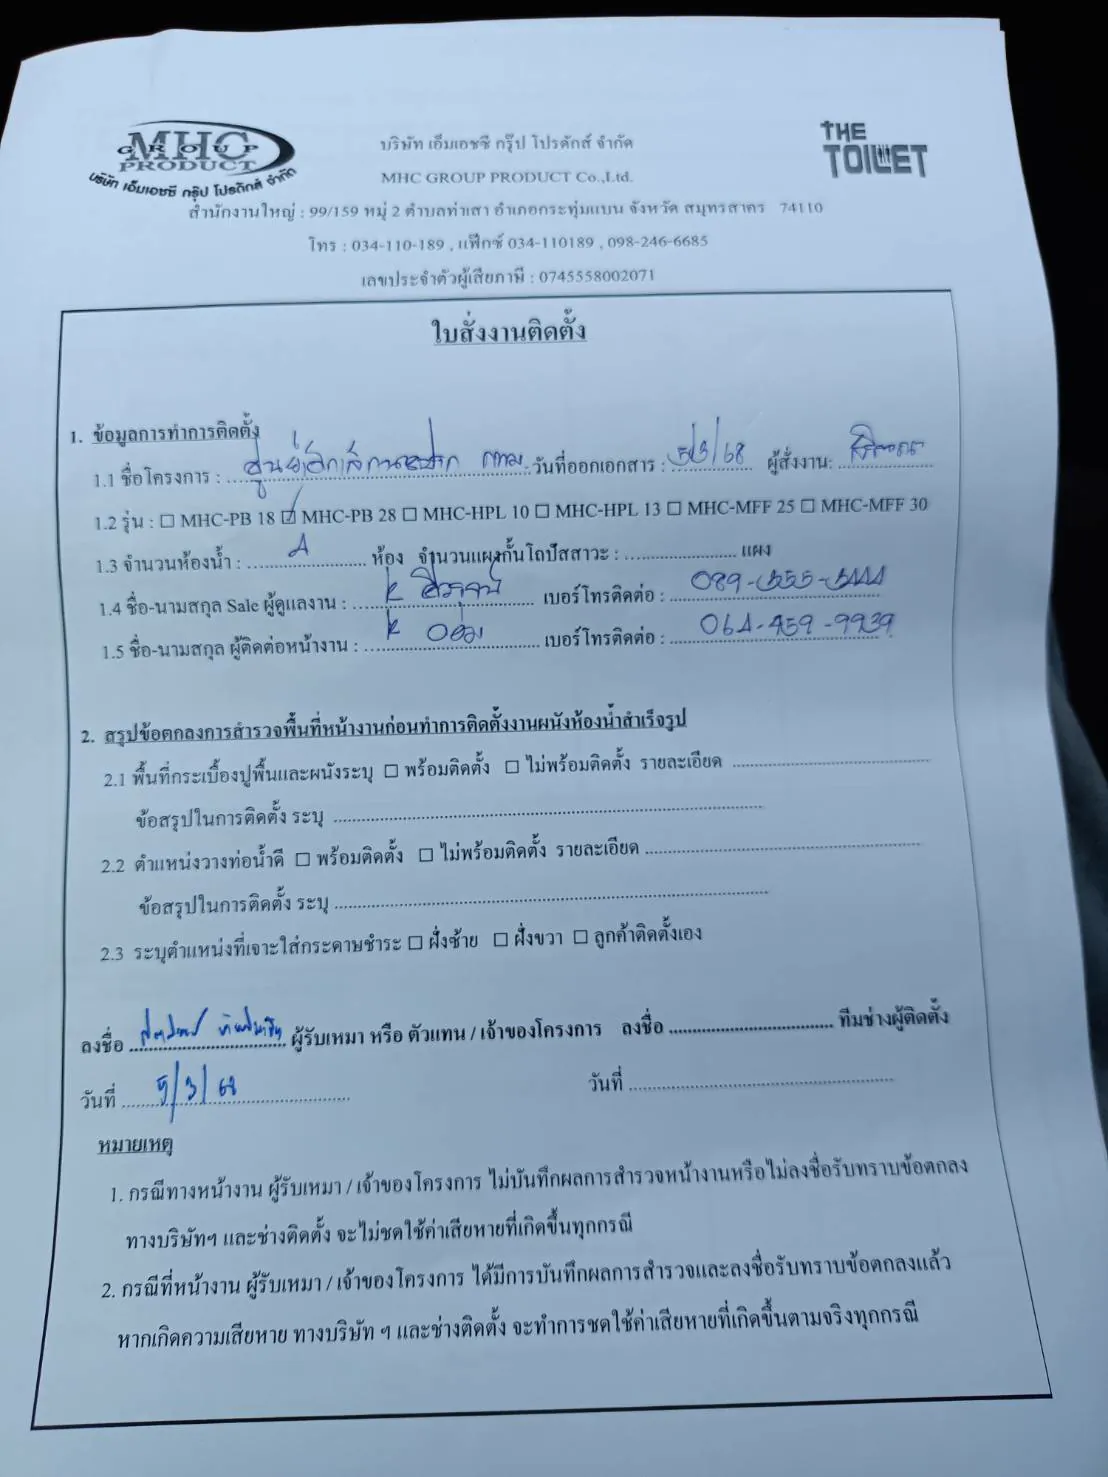 MHC
GROUP
PRODUCT
บริษัท เอ็มเอชซี กรุ๊ป โปรดักส์ จำกัด
THE
TOILET
บริษัท เอ็มเอชซี กรุ๊ป โปรดักส์ จำกัด
MHC GROUP PRODUCT Co.,Ltd.
สำนักงานใหญ่ : 99/159 หมู่ 2 ตำบลท่าเสา อำเภอกระทุ่มแบน จังหวัด สมุทรสาคร 74110
โทร : 034-110-189 , แฟ๊กซ์ 034-110189 , 098-246-6685
เลขประจำตัวผู้เสียภาษี : 0745558002071
ใบสั่งงานติดตั้ง
1. ข้อมูลการทำการติดตั้ง
1.1 ชื่อโครงการ : กทม วันที่ออกเอกสาร : 5/3/68 ผู้สั่งงาน:
1.2 รุ่น : ☐ MHC-PB 18 ☑ MHC-PB 28 ☐ MHC-HPL 10 ☐ MHC-HPL 13 ☐ MHC-MFF 25 ☐ MHC-MFF 30
1.3 จำนวนห้องน้ำ : 4 ห้อง จำนวนแผงกั้นโถปัสสาวะ : .................... แผง
1.4 ชื่อ-นามสกุล Sale ผู้ดูแลงาน : K เบอร์โทรติดต่อ :
1.5 ชื่อ-นามสกุล ผู้ติดต่อหน้างาน : K เบอร์โทรติดต่อ : 064-459-9939
2. สรุปข้อตกลงการสำรวจพื้นที่หน้างานก่อนทำการติดตั้งงานผนังห้องน้ำสำเร็จรูป
2.1 พื้นที่กระเบื้องปูพื้นและผนังระบุ ☐ พร้อมติดตั้ง ☐ ไม่พร้อมติดตั้ง รายละเอียด ....................
ข้อสรุปในการติดตั้ง ระบุ ....................
2.2 ตำแหน่งวางท่อน้ำดี ☐ พร้อมติดตั้ง ☐ ไม่พร้อมติดตั้ง รายละเอียด ....................
ข้อสรุปในการติดตั้ง ระบุ ....................
2.3 ระบุตำแหน่งที่เจาะใส่กระดาษชำระ ☐ ฝั่งซ้าย ☐ ฝั่งขวา ☐ ลูกค้าติดตั้งเอง
ลงชื่อ ผู้รับเหมา หรือ ตัวแทน / เจ้าของโครงการ ลงชื่อ .................... ทีมช่างผู้ติดตั้ง
วันที่ 5/3/68 วันที่ ....................
หมายเหตุ
1. กรณีทางหน้างาน ผู้รับเหมา / เจ้าของโครงการ ไม่บันทึกผลการสำรวจหน้างานหรือไม่ลงชื่อรับทราบข้อตกลง
ทางบริษัทฯ และช่างติดตั้ง จะไม่ชดใช้ค่าเสียหายที่เกิดขึ้นทุกกรณี
2. กรณีที่หน้างาน ผู้รับเหมา / เจ้าของโครงการ ได้มีการบันทึกผลการสำรวจและลงชื่อรับทราบข้อตกลงแล้ว
หากเกิดความเสียหาย ทางบริษัท ฯ และช่างติดตั้ง จะทำการชดใช้ค่าเสียหายที่เกิดขึ้นตามจริงทุกกรณี